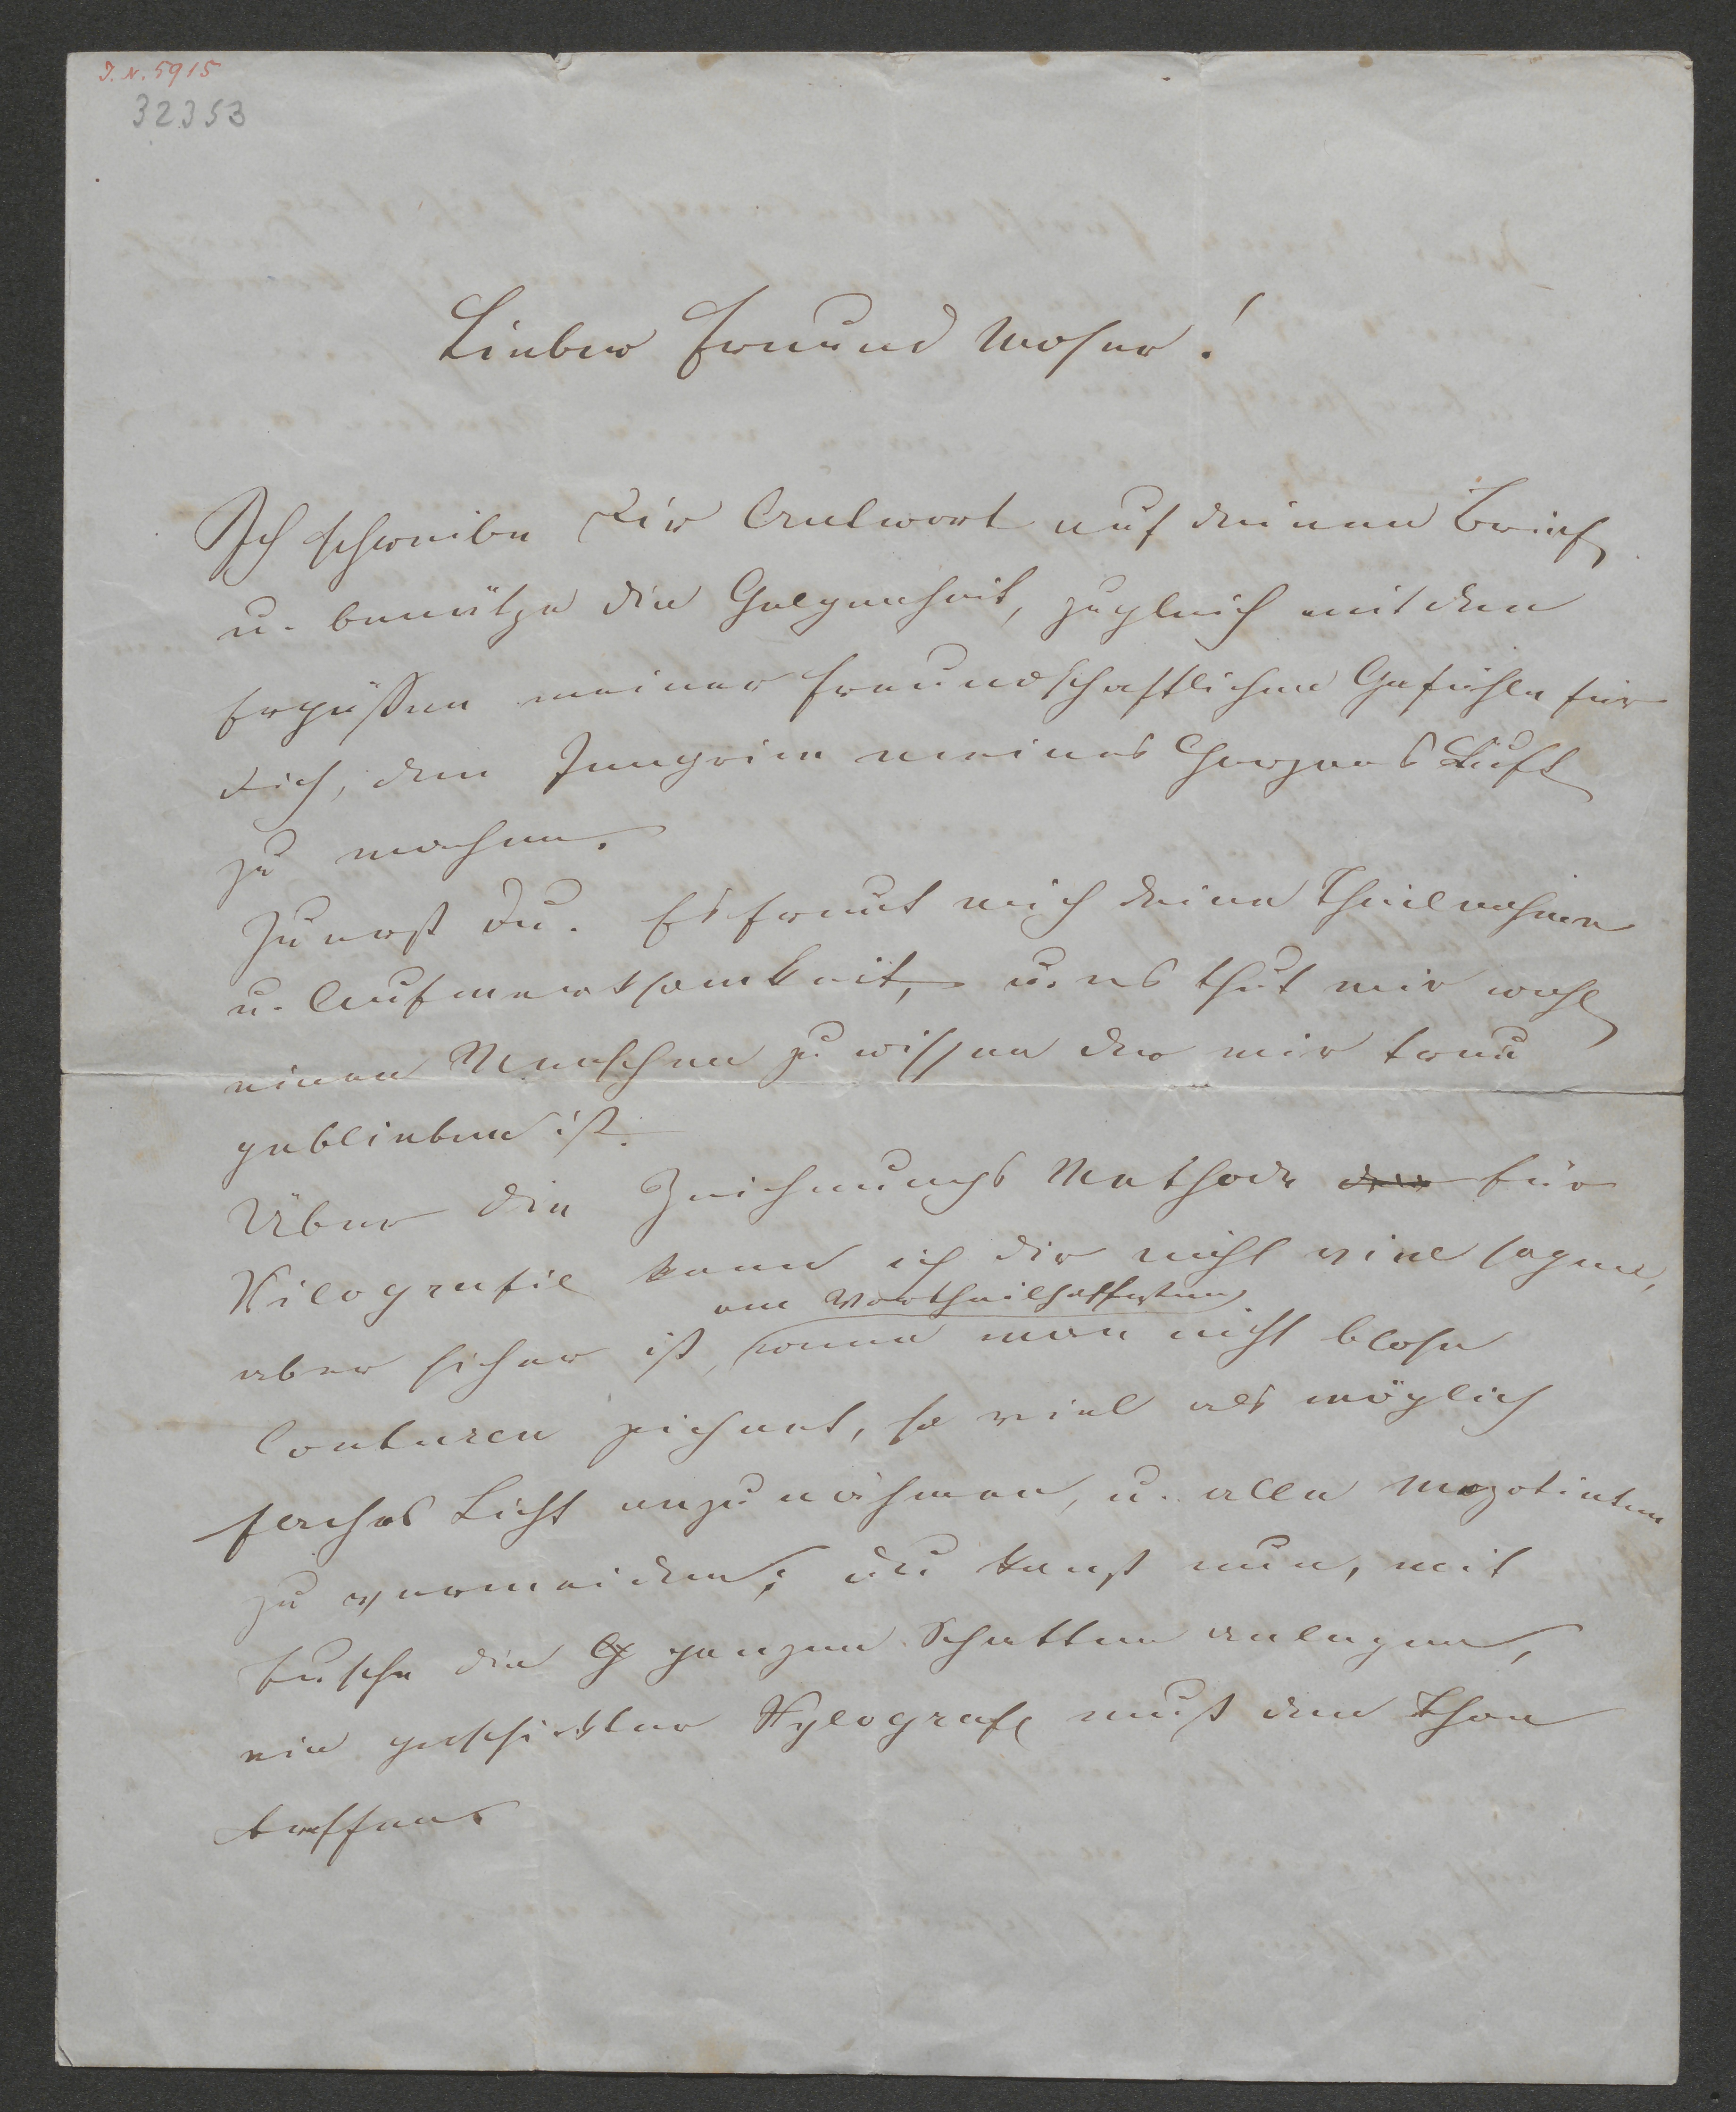 J. N. 5915
32353
Lieber Freund Moser!
Ich schreibe Dir Antwort auf deinen Brief
u. benütze die Gelgenheit, zugleich mit den
Ergüßen meiner freundschaftlichen Gefühle für
Dich, dem Inngrim meines Herzens Luft
zu machen.
Zuerst du. Es freut mich deine Theilnahme
u. Aufmerksamkeit, u. es thut mir wohl
einen Menschen zu wissen der mir treu
geblieben ist.
Über die Zeichnungs Methode die für
Xilografie kann ich dir nicht viel sagen,
am Vortheilhaftesten
aber sicher ist, wenn man nicht blose
Conturen zichnet, so viel als möglich
faches Licht anzunähmen, u. alle Mezotinten
zu vermeiden; du kanst nun, mit
Tusche die G ganzen Schatten anlegen,
ein geschikter Xylograf muß den Thon
treffen.